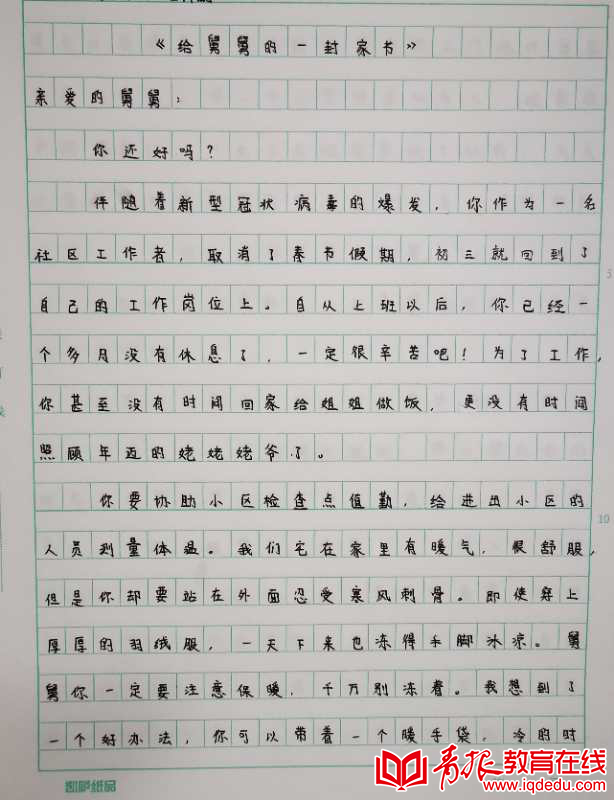 《给舅舅的一封家书》
亲爱的舅舅：
你还好吗？
伴随着新型冠状病毒的爆发，你作为一名
社区工作者，取消了春节假期，初三就回到了
自己的工作岗位上。自从上班以后，你已经一
个多月没有休息了，一定很辛苦吧！为了工作，
你甚至没有时间回家给姐姐做饭，更没有时间
照顾年迈的姥姥姥爷了。
你要协助小区检查点值勤，给进出小区的
人员测量体温。我们宅在家里有暖气，很舒服，
但是你却要站在外面忍受寒风刺骨。即使穿上
厚厚的羽绒服，一天下来也冻得手脚冰凉。舅
舅你一定要注意保暖，千万别冻着。我想到了
一个好办法，你可以带着一个暖手袋，冷的时
5
10
青报教育在线
www.iqdedu.com